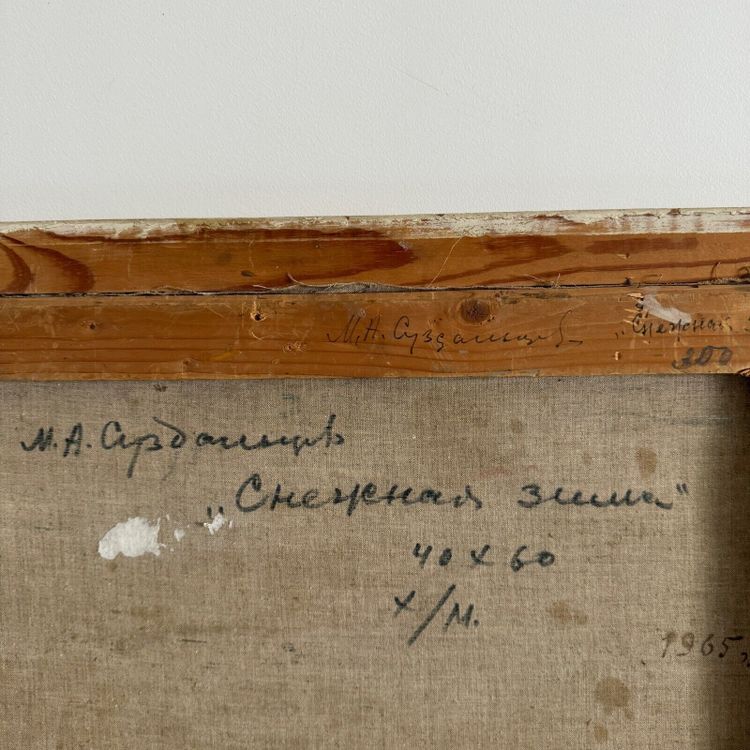 М.А. Суздальцев
„Снежная
300
М.А. Суздальцев
„Снежная зима"
40 х 60
х/м.
1965